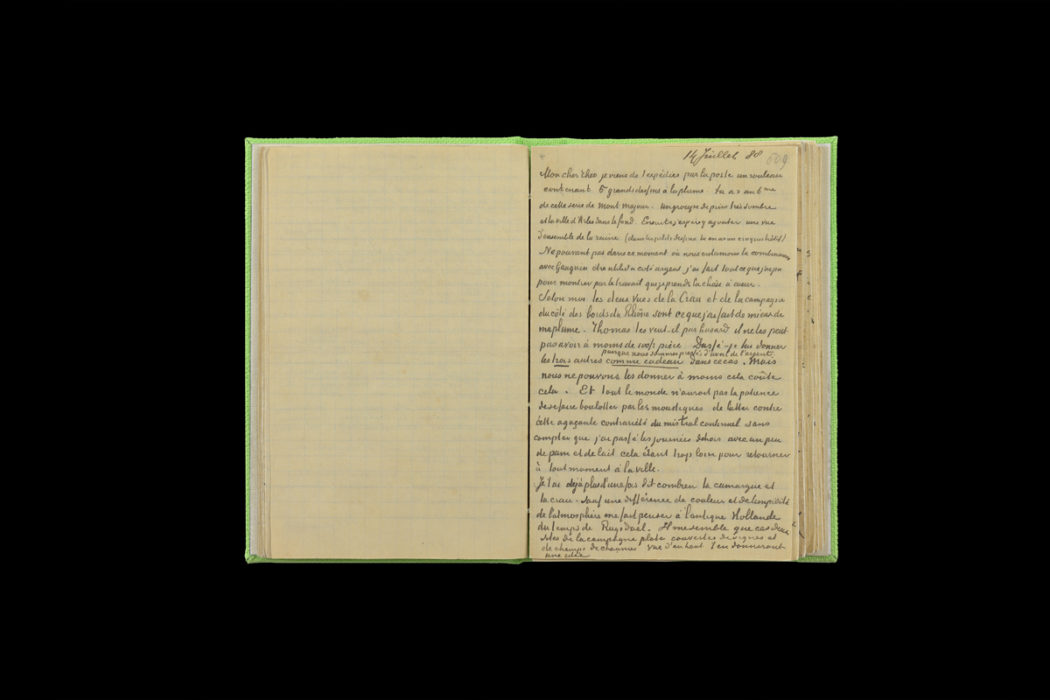 14 Juillet 88 509
Mon cher Theo je viens de t'expédier par la poste un rouleau
contenant 5 grands dessins à la plume. Tu as un 6me
de cette serie de Mont Majour. Un groupe de pins très sombre
et la ville d'Arles dans le fond. Ensuite j'espère y ajouter une vue
d'ensemble de la ruine (dans les petits dessins tu en as un croquis hâtif)
Ne pouvant pas dans ce moment où nous entamons la combinaison
avec Gauguin être utile du coté argent j'ai fait tout ce que j'ai pu
pour montrer par le travail que je prends la chose à cœur.
Selon moi les deux vues de la Crau et de la campagne
du côté des bords du Rhône sont ce que j'ai fait de mieux de
ma plume. Thomas les veut-il par hasard il ne les peut
pas avoir à moins de 100fr pièce. Dussé-je lui donner
puisque nous sommes pressés d'avoir de l'argent
les trois autres comme cadeau dans ce cas. Mais
nous ne pouvons les donner à moins cela coûte
cela. Et tout le monde n'aurait pas la patience
de se faire boulotter par les moustiques de lutter contre
cette agaçante contrariété du mistral continuel sans
compter que j'ai passé les journées dehors avec un peu
de pain et de lait cela étant trop loin pour retourner
à tout moment à la ville.
Je t'ai déjà plus d'une fois dit combien la camargue et
la crau - sauf une différence de couleur et de limpidité
de l'atmosphère me font penser à l'antique Hollande
du temps de Ruysdael. Il me semble que ces deux
sites de la campagne plate couverte de vignes et
de champs de chaumes vue d'en haut t'en donneront
une idée